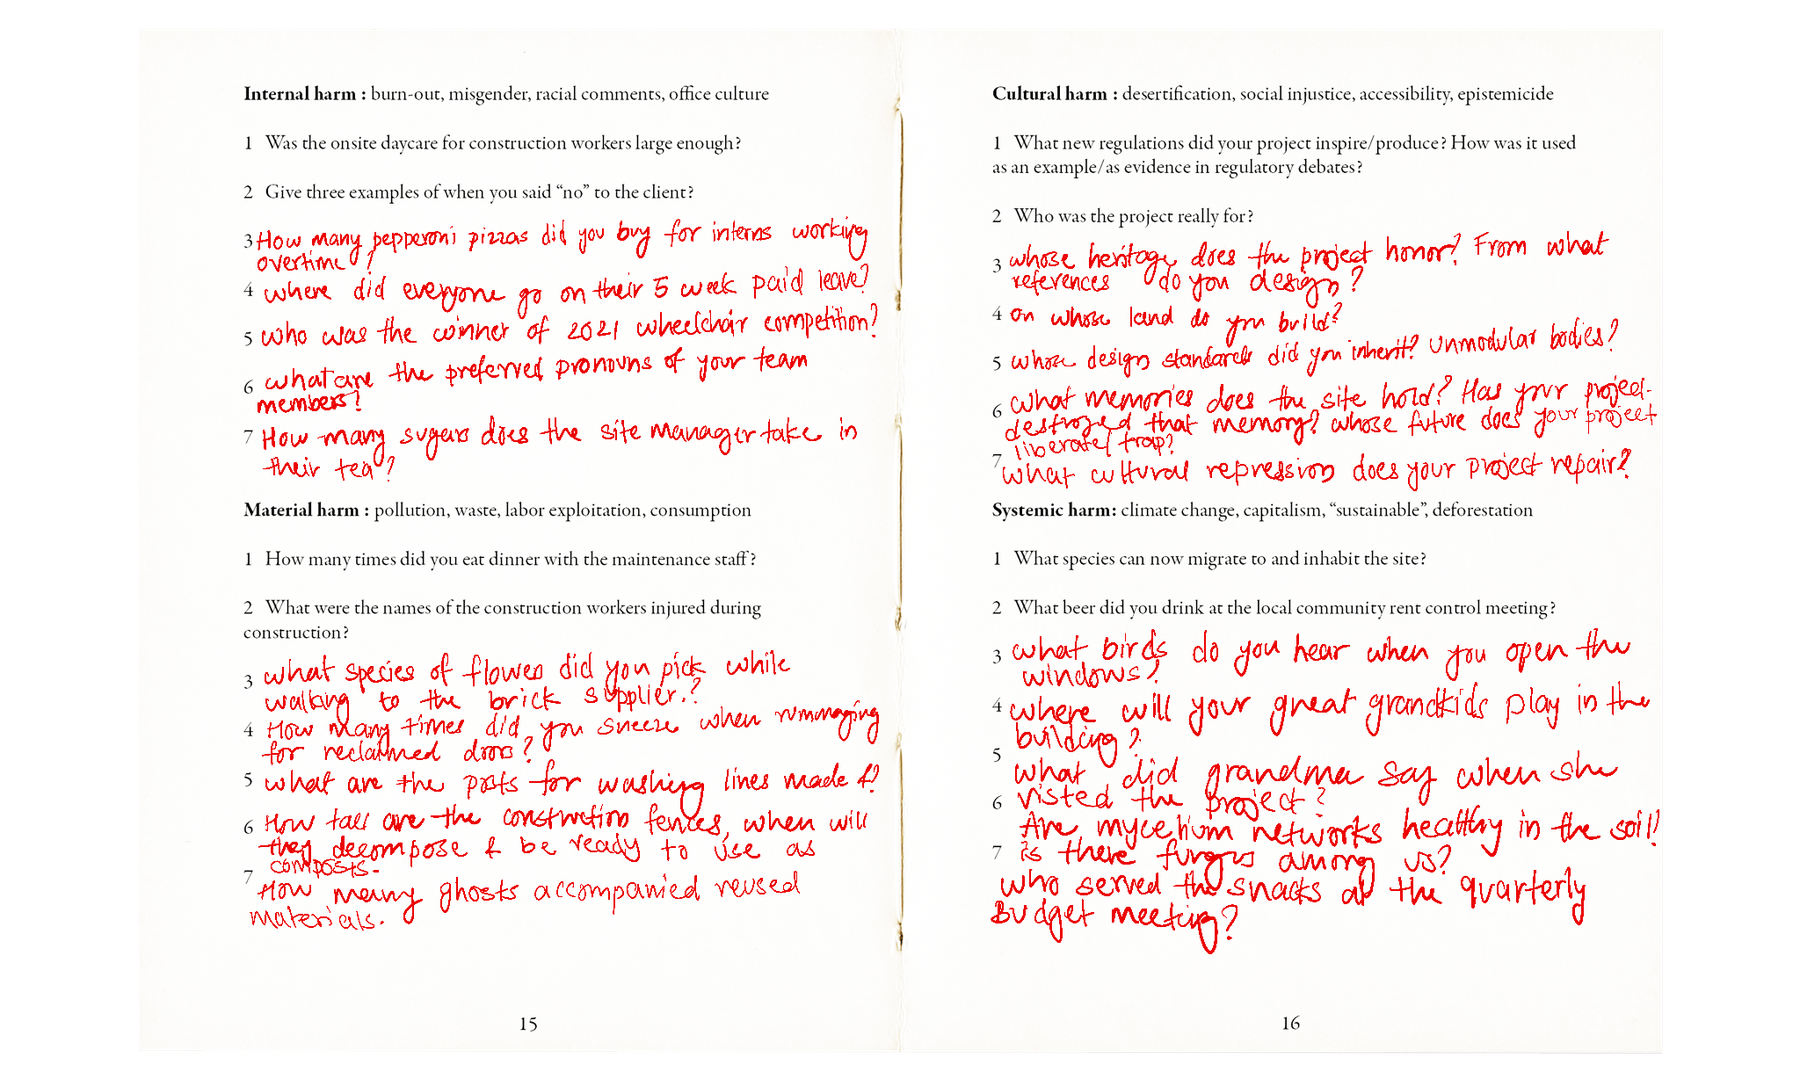 Internal harm : burn-out, misgender, racial comments, office culture
1 Was the onsite daycare for construction workers large enough?
2 Give three examples of when you said “no” to the client?
3 How many pepperoni pizzas did you buy for interns working
overtime?
4 where did everyone go on their 5 week paid leave?
5 who was the winner of 2021 wheelchair competition?
6 what are the preferred pronouns of your team
members?
7 How many sugars does the site manager take in
their tea?
Material harm : pollution, waste, labor exploitation, consumption
1 How many times did you eat dinner with the maintenance staff?
2 What were the names of the construction workers injured during
construction?
3 what species of flower did you pick while
walking to the brick supplier.?
4 How many times did you sneeze when rummaging
for reclaimed doors?
5 what are the posts for washing lines made of?
6 How tall are the construction fences, when will
they decompose & be ready to use as
composts.
7 How many ghosts accompanied reused
materials.
15
Cultural harm : desertification, social injustice, accessibility, epistemicide
1 What new regulations did your project inspire/produce? How was it used
as an example/as evidence in regulatory debates?
2 Who was the project really for?
3 whose heritage does the project honor? From what
references do you design?
4 on whose land do you build?
5 whose design standards did you inherit? Unmodular bodies?
6 what memories does the site hold? Has your project
destroyed that memory? whose future does your project
liberate/trap?
7 what cultural repression does your project repair?
Systemic harm: climate change, capitalism, “sustainable”, deforestation
1 What species can now migrate to and inhabit the site?
2 What beer did you drink at the local community rent control meeting?
3 what birds do you hear when you open the
windows?
4 where will your great grandkids play in the
building?
5 what did grandma say when she
visted the project?
6 Are mycelium networks healthy in the soil?
7 is there fungus among us?
who served the snacks at the quarterly
Budget meeting?
16